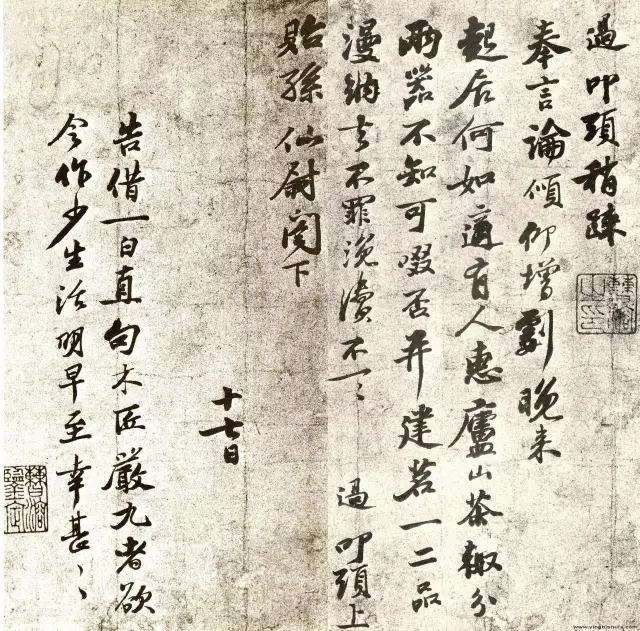 過叩頭稍疎
奉言論傾仰增劇晚来
起居何如適有人惠廬山茶輙分
兩器不知可啜否并建茗一二品
漫納去不罪浼瀆不一〻 過叩頭上
貽孫仙尉閣下
十七日
告借一白直句木匠嚴九者欲
令作少生活明早至幸甚〻
www.yingbishufa.com